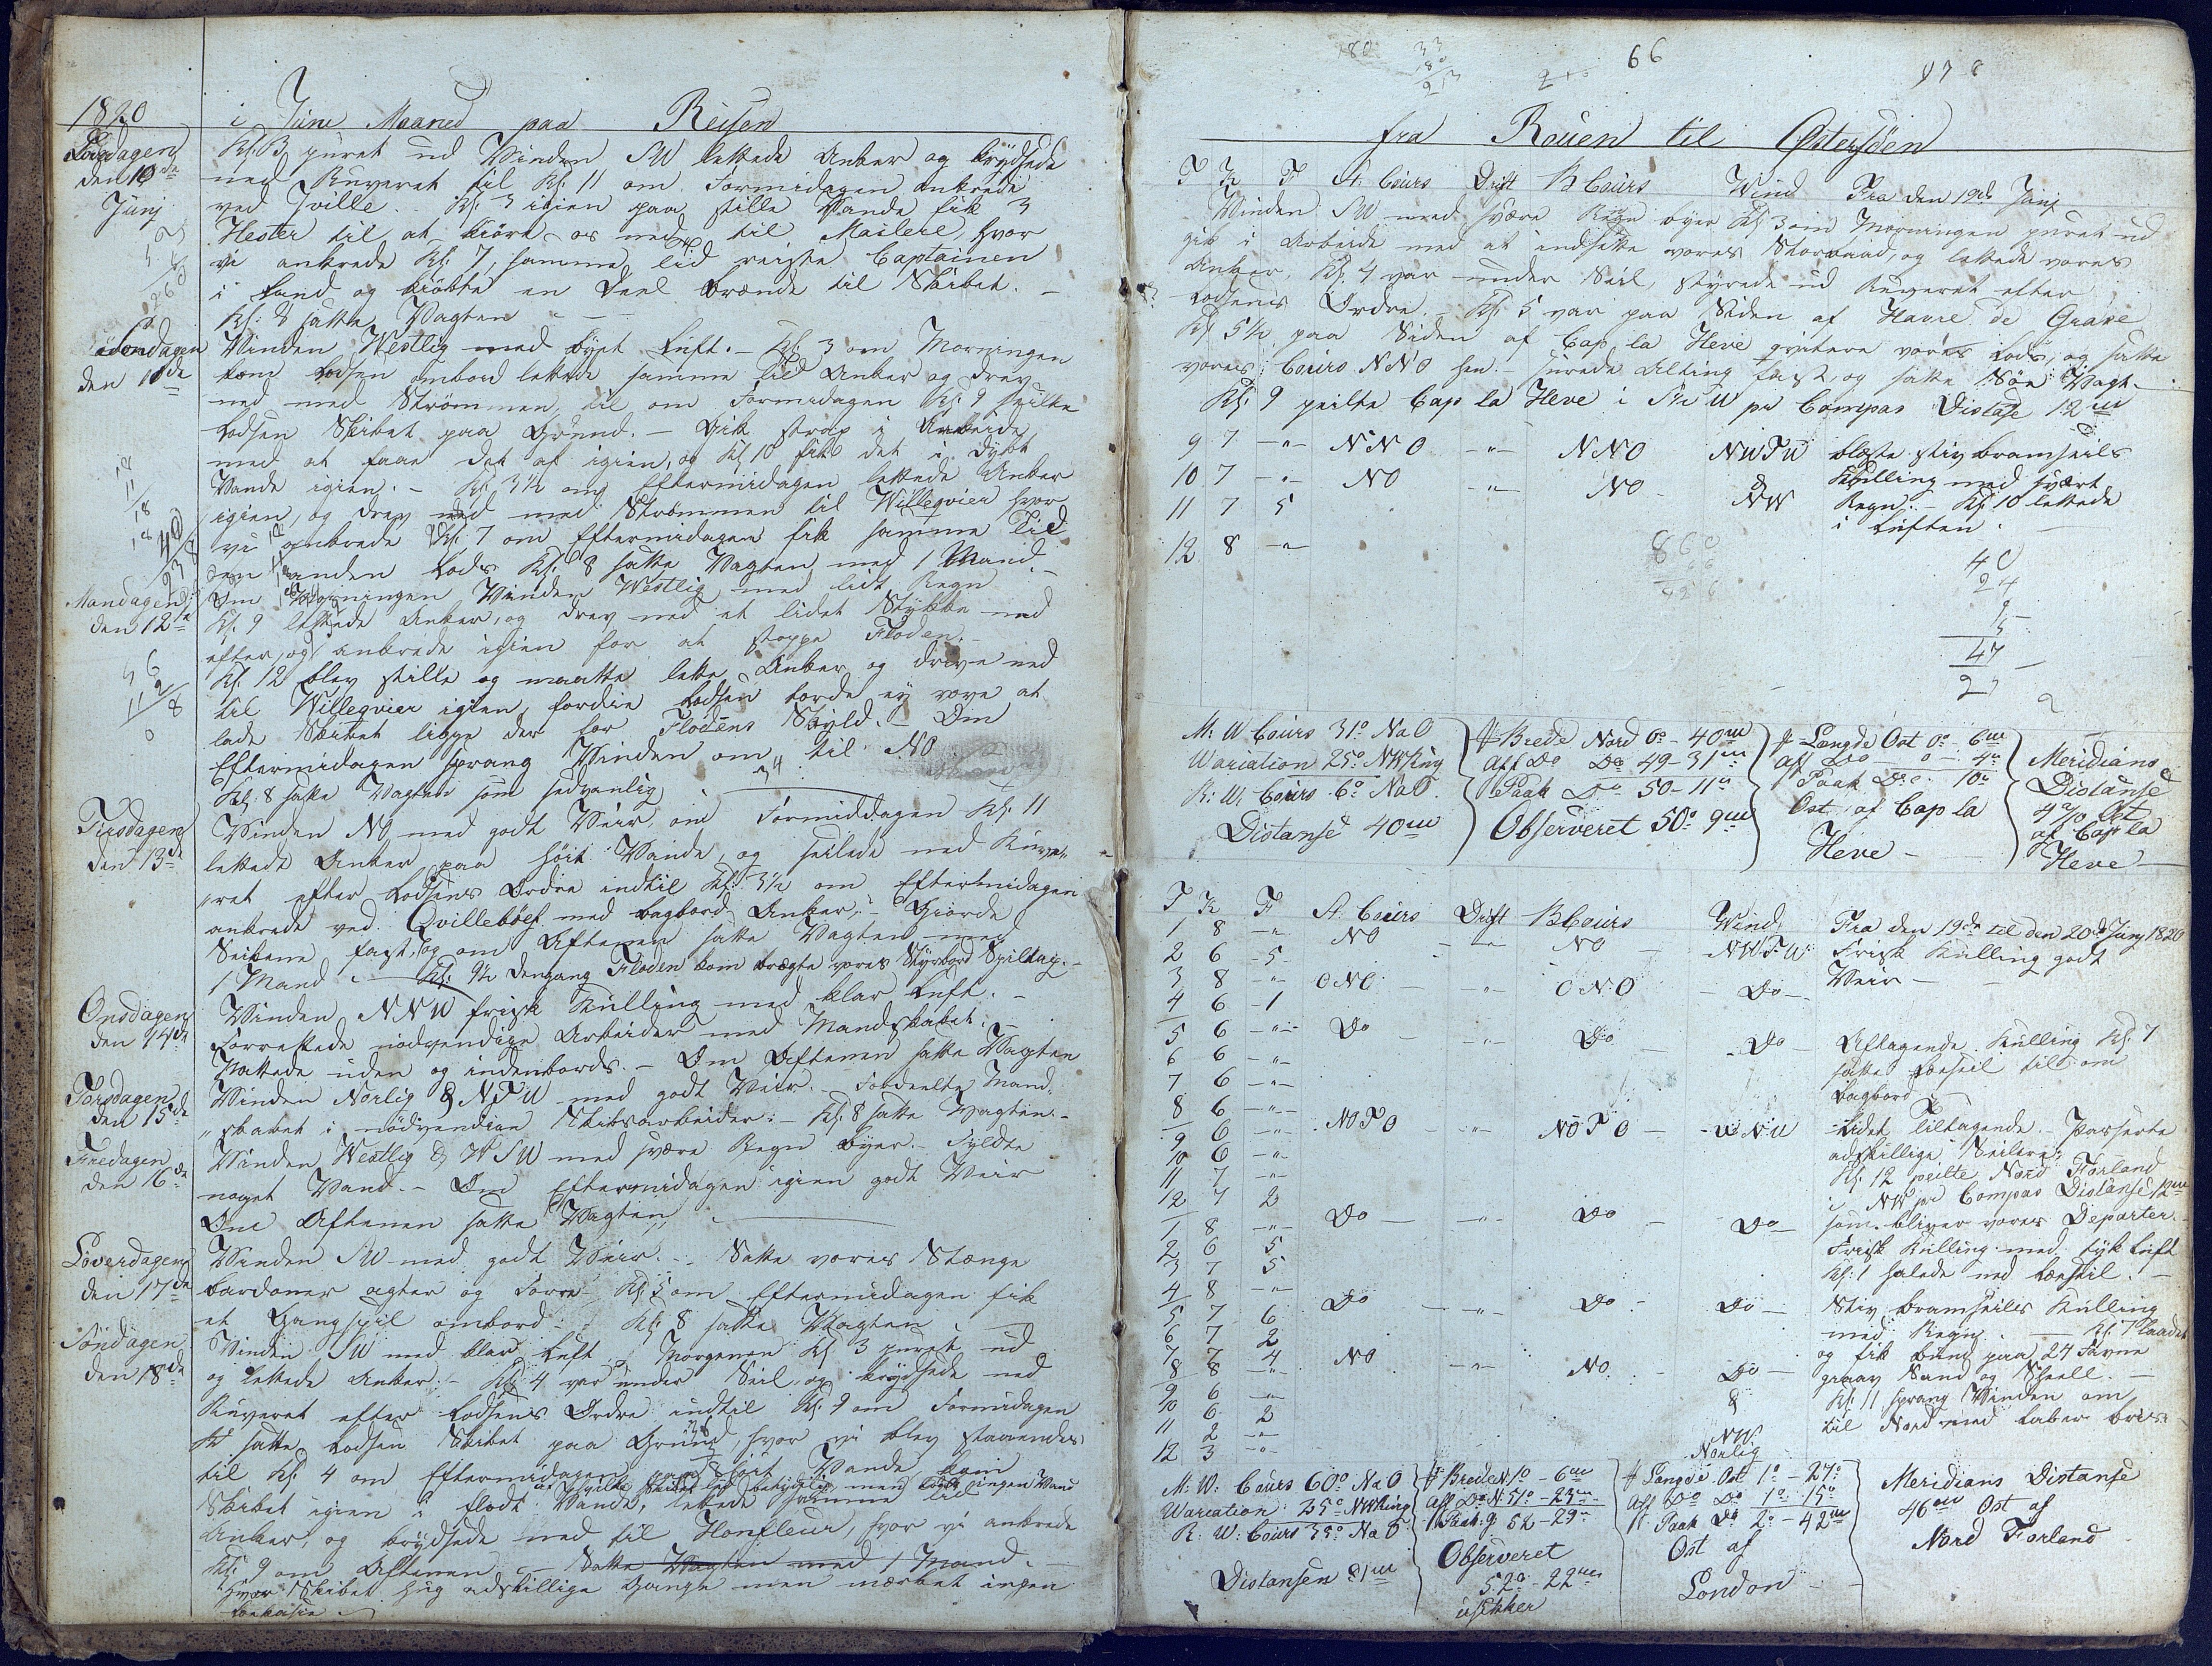 1820
i Juni Maaned paa Reisen
Løverdagen
den 10de
Junj
Kl. 3 purret ud Vinden SW lettede Anker og krydsede
ned Ruveret til Kl: 11 om Formidagen ankrede
ved Jville. Kl: 3 igien paa stille Vande fik 3
Hester til at kiöre os ned til Mailere, hvor
vi ankrede Kl: 7, samme tid reiste Captainen
i Land og kiöbte en Deel brænde til Skibet. -
Kl: 8 satte Vagten -
Søndagen
den 11de
Vinden Westlig med tykt Luft. - Kl: 3 om Morningen
kom Lodsen ombord lettede samme tid Anker og drev
ned med Strömmen, til om Formidagen Kl: 9 seilte
Lodsen Skibet paa Grund. - Gik strax i Arbeide
med at faae det af igien, og Kl: 10 fik det i dybt
Vande igien. - Kl: 3½ om Eftermidagen lettede Anker
igien, og drev ned med Strömmen til Willeqvier hvor
vi ankrede Kl: 7 om Eftermidagen fik samme Tid
en anden Lods Kl: 8 satte Vagten med 1 Mand. -
Mandagen
den 12te
Om Morningen Vinden Westlig med lidt Regn
Kl: 9 lettede Anker, og drev ned et lidet Stykke ned
efter, og ankrede igien for at stoppe Floden. -
Kl: 12 blev stille og maatte lette Anker og drive ned
til Willeqvier igien, fordie Lodsen torde ej vove at
lade Skibet ligge der for Flodens Skyld. - Om
Eftermidagen sprang Vinden om til NO
Kl: 8 satte Vagten som sedvanlig
Tirsdagen
den 13de
Vinden NO med godt Veir, om Formiddagen Kl: 11
lettede Anker paa höit Vande, og seilede ned Ruve-
ret efter Lodsens Ordre indtil Kl: 3½ om Eftermidagen
ankrede ved Qvilleböef med Bagbord Anker, - Giorde
Seilene fast, og om Aftenen satte Vagten med
1 Mand - Kl: 9½ dengang Floden kom brægte vores Styrbord Spiltap. -
Onsdagen
den 14de
Vinden NNW frisk Kulling med klar Luft. -
Forrettede nödvendige Arbeider med Mandskabet. -
Nattede uden og indenbords. - Om Aftenen satte Vagten
Torsdagen
den 15de
Vinden Norlig & NTW med godt Veir. - Fordeelte Mand-
skabet i nödvendige Skibsarbeider. - Kl: 8 satte Vagten. -
Fredagen
den 16de
Vinden Westlig & WSW med svære Regn Byer. - Fyldte
noget Vand. - Om Eftermidagen igien godt Veir
Om Aftenen satte Vagten
Löverdagen
den 17de
Vinden SW med godt Veir. - Satte vores Stænge
bardoner agter og Forre Kl: 5 om Eftermidagen fik
et Gangspil ombord. - Kl: 8 satte Vagten
Söndagen
den 18de
Vinden SW med klar Luft Morgenen Kl: 3 purret ud
og lettede Anker. - Kl: 4 var under Seil, og krydsede ned
Ruveret efter Lodsens Ordre indtil Kl: 9 om Formidagen
satte Lodsen Skibet paa Grund, hvor vi blev staaendes
til Kl: 4 om Eftermidagen paa höit Vande kom
Skibet igien i flodt Vande, lettede samme tid
Anker, og krydsede ned til Honfleur, hvor vi ankrede
Kl: 9 om Aftenen - Satte Vagten med 1 Mand.
hvor Skibet hug adskillige Gange men mærket ingen
Lækasie
66
fra Rouen til Östersöen
T K F St. Cours Drift B Cours Wind Fra den 19de Junj
Vinden SW med svære Regn byer Kl: 3 om Morningen purret ud
gik i Arbeide med at indsette vores Storbaad, og lettede vores
Anker. Kl: 4 var under Seil, styrede ud Ruveret efter
Lodsens Ordre. - Kl: 5 var paa Siden af Havre de Grase
Kl: 5½ paa Siden af Cap la Heve qvitere vores Lods, og satte
vores Cours NNO hen. - surede Alting fast, og satte Söe Vagt. -
Kl: 9 peilte Cap la Heve i StW pr Compas Distase 12m
9 7 -"- NNO -"- NNO NWTW blæste stiv bramseils
10 7 -"- NO -"- NO & Kulling med svært
11 7 5 NW Regn. - Kl: 10 lettede
12 8 -"- i Luften.
40
24
47
M: W Cours 31° NaO
Wariation 25° NWsing
R: W: Cours 6° NaO
Distanse 40m
f Brede Nord 0° - 40m
Aff Do Do 49 - 31m
Paak Do 50 - 11m
Observeret 50° 9m
f Længde Ost 0° 6m
Aff Do 0 - 4m
Paak Do 10m
Ost af Cap la
Heve -
Meridians
Distanse
4 7/10 Ost
af Cap la
Heve
T K F St. Cours Drift B Cours Wind Fra den 19de til den 20de Junj 1820
1 8 -"- NO -"- NO NWTW Frisk Kulling godt
2 6 5 Veir -
3 8 -"- ONO -"- ONO Do
4 6 1
5 6 -"- Do -"- Do Do Aftagende Kulling Kl: 7
6 6 -"- satte Læseil till om
7 6 -"- Bagbord
8 6 -"-
9 6 -"- NOTO -"- NOTO WNW Lidet Tiltagende. - Passerte
10 6 -"- adskillige Seilere,
11 7 -"- Kl: 12 peilte Nord Forland
12 7 2 i NW pr Compas Distanse 12m
1 8 -"- Do -"- Do Do som bliver vores Departer. -
2 6 5 Frisk Kulling med tyk Luft
3 7 5 Kl: 1 halede ned Læseil. -
4 8 -"-
5 7 6 Do -"- Do Do Stiv bramseils Kulling
6 7 2 med Regn. - Kl: 7 laadet
7 7 4 NO -"- NO Do og fik bund paa 24 Favne
8 8 -"- & graav Sand og Skeell. -
9 6 -"- NW Kl: 11 sprang Vinden om
10 6 2 Norlig til Nord med laber bris
11 2 -"-
12 3 -"-
M: W: Cours 60° NaO
Wariation 25° NWsing
R: W: Cours 35° NaO
Distansen 81m
f Brede N 1° - 6m
Aff Do N 51° - 23m
Paak: g 52 - 29m
Observeret
52° - 22m
usikker
f Længde Ost 1° - 27°
Aff Do Do 1° - 15°
Paak Do 2° - 42m
Ost af
London -
Meridians Distanse
46m Ost af
Nord Forland